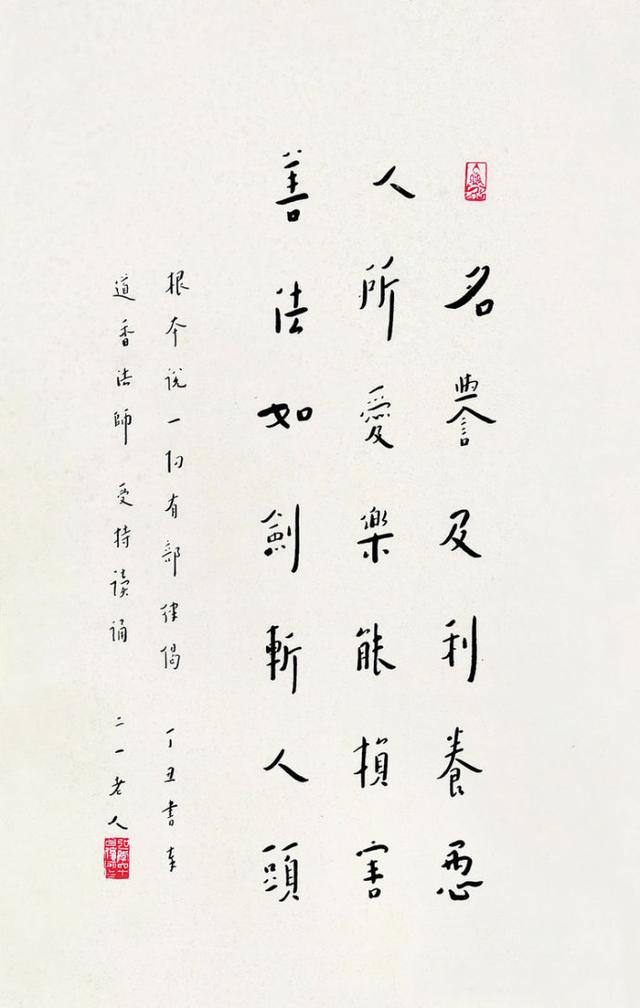 名譽及利養惡
人所愛樂能損害
善法如劍斬人頭
根本說一切有部律偈 丁丑書奉
道香法師受持讀誦 二一老人